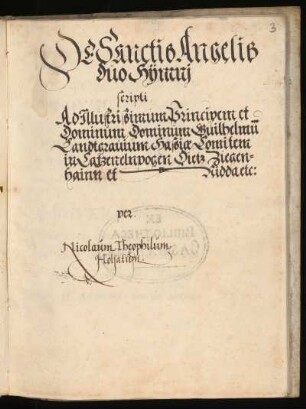 3
De Sanctis Angelis
duo Hÿmnj
scripti
Ad Illustrissimum Principem et
Dominum Dominum Guilhelmū
Landtgrauium Hassiæ Comitem
in Catzenelnbogen Dietz Ziegen-
hainn et Nidda etc:
per.
Nicolaum Theophilum
Holsatum.
EX
BIBLIOTHECA